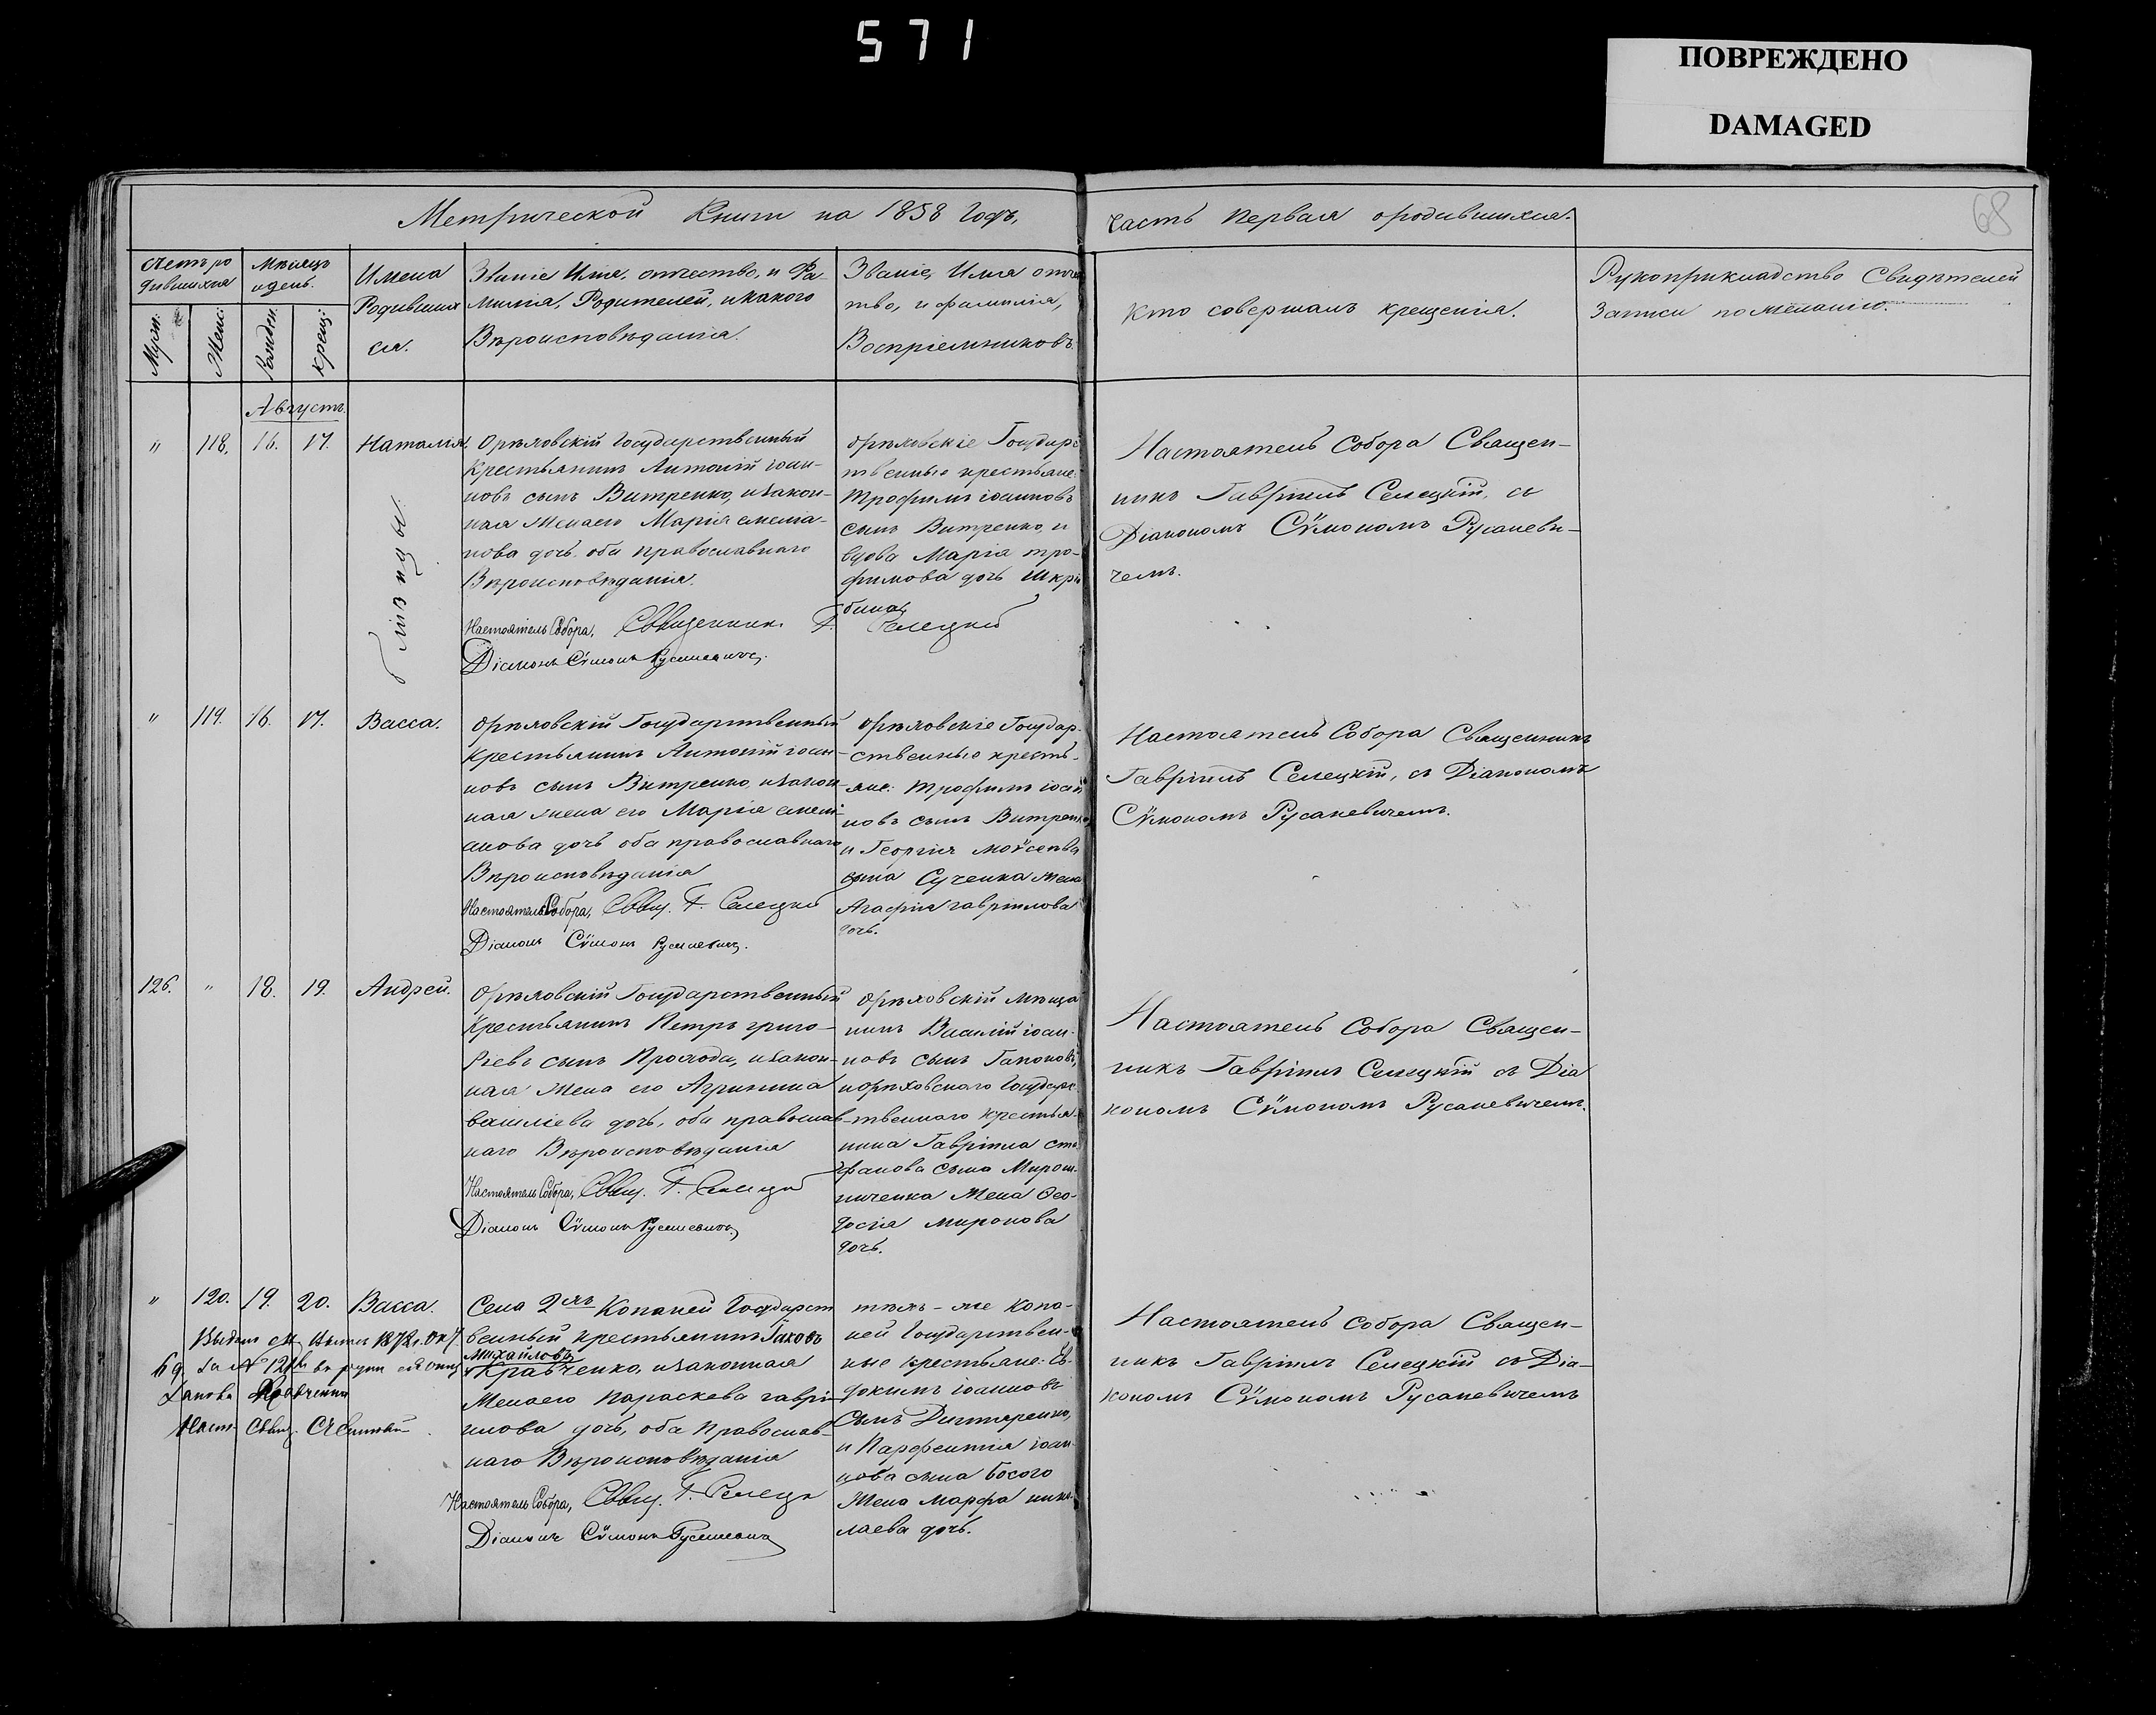 571
ПОВРЕЖДЕНО
DAMAGED
68
Метрической Книги на 1858 Годъ,
часть первая ородившихся.
Счетъ ро
дившихся
Мѣсяцъ
и день.
Имена
Родивших
ся.
Званіе Имя, отчество, и Фа-
милія, Родителей, икакого
Вѣроисповѣданія.
Званіе, Имя отче
тво, и фамилія,
Воспріемниковъ.
Кто совершалъ крещенія.
Рукоприкладство Свидѣтелей
Записи пожеланію.
Муж:
Женс:
Рожден.
крещ:
Августъ.
" 118. 16. 17. Наталія.
близнцы.
Орѣховскій Государственный
крестьянинъ Антоній іоан-
новъ сынъ Витренко, изакон-
ная Женаего Марія емелiа-
нова дочь. оба православнаго
Вѣроисповѣданія.
Настоятель Собора, Священникъ Г. Селецкій
Діаконъ Сѵмонъ Русаневичъ.
орѣховскіе Государс
твенные крестьяне:
Трофимъ іоанновъ
сынъ Витренко, и
вдова Марія тро-
фимова дочь Шкря
бина,
Настоятель Собора Священ-
никъ Гавріилъ Селецкій, съ
Діакономъ Сѵмономъ Русаневи-
чемъ.
" 119. 16. 17. Васса.
Орѣховскій Государственный
Крестьянинъ Антоній іоан-
новъ сынъ Витренко, изакон-
ная жена его Марія емели-
анова дочь оба православнаго
Вѣроисповѣданія
Настоятель Собора, Свящ. Г. Селецкій
Діаконъ Сѵмонъ Русаневичъ.
Орѣховскіе Государ-
ственные кресть-
яне: Трофимъ іоан
новъ сынъ Витренко
и Георгія моѵсеева
сына Сученка жена
Агафія гавріилова
дочь.
Настоятель Собора Священникъ
Гавріилъ Селецкій, съ Діакономъ
Сѵмономъ Русаневичемъ.
126. " 18. 19. Андрей.
Орѣховскій Государственный
Крестьянинъ Петръ григо-
рьевъ сынъ Прохода, изакон-
ная Жена его Агрипина
васіліева дочь, оба православ-
наго Вѣроисповѣданія
Настоятель Собора, Свящ. Г. Селецкій
Діаконъ Сѵмонъ Русаневичъ.
Орѣховскій мѣща
нинъ Василій іоан-
новъ сынъ Гапоновъ,
иорѣховскаго Государс
твеннаго крестья-
нина Гавріила сте
фанова сына Мирош-
ниченка Жена Ѳео-
досія миронова
дочь.
Настоятель Собора Священ-
никъ Гавріилъ Селецкій съ Діа
кономъ Сѵмономъ Русаневичемъ.
" 120. 19. 20. Васса.
Настоят. Свящ.
Села 2хъ Копаней Государст
венный крестьянинъ Іаковъ
Михайловъ
Кравченко, изаконная
Женаего Параскева гаврі-
илова дочь, оба Православ-
наго Вѣроисповѣданія
Настоятель Собора, Свящ. Г. Селецк
Діаконъ Сѵмонъ Русаневичъ
тѣхъ-же Копа-
ней Государствен-
ные крестьяне: Ев-
докимъ іоанновъ
Сынъ Дихтяренко,
и Парфентія іоан-
нова сына Босого
Жена Марфа нико-
лаева дочь.
Настоятель Собора Священ-
никъ Гавріилъ Селецкій съ Діа-
кономъ Сѵмономъ Русаневичемъ